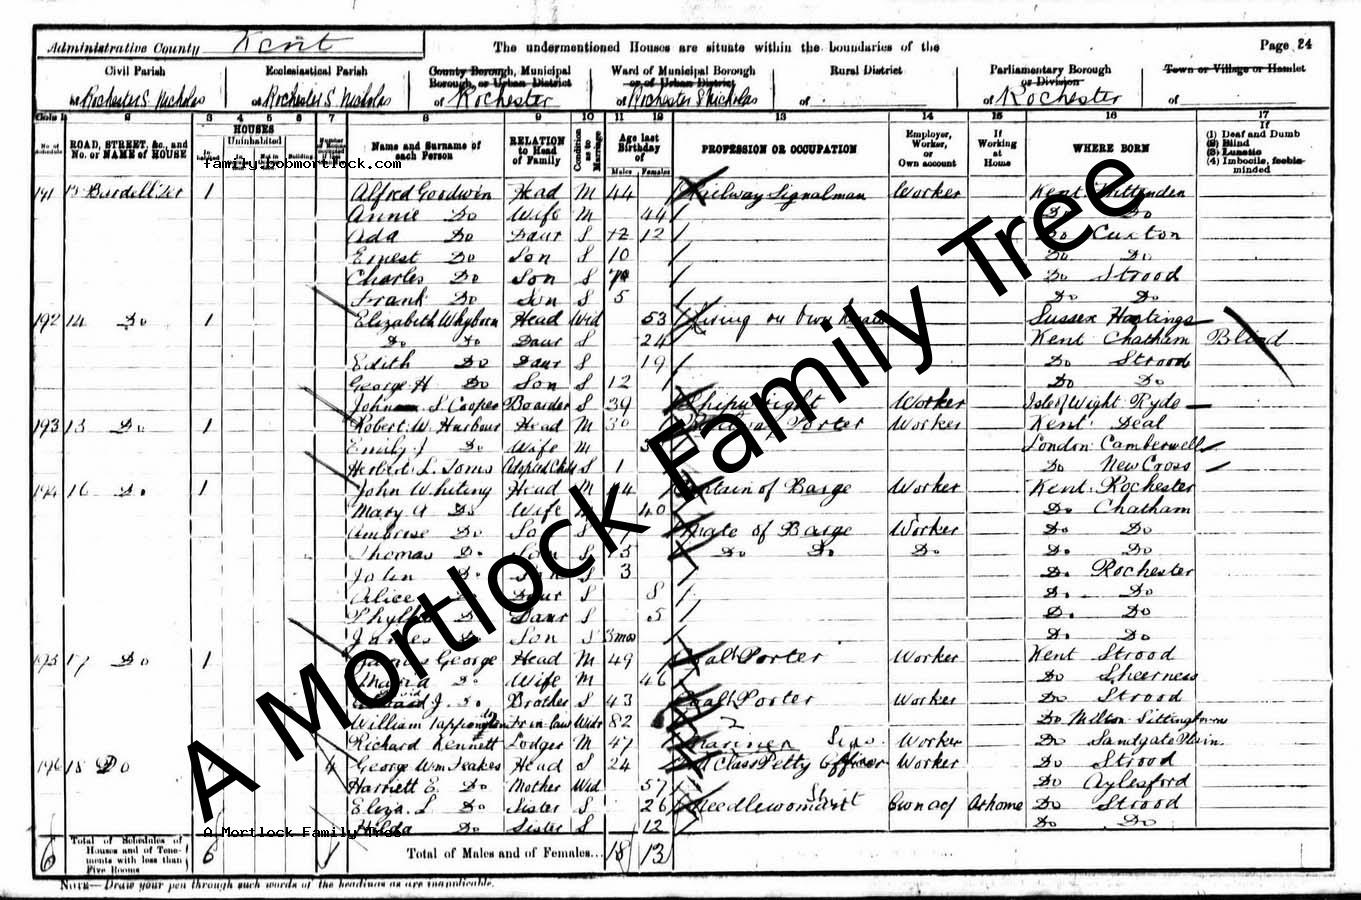 Administrative County Kent The undermentioned Houses are situate within the boundaries of the Page 24
Civil Parish Ecclesiastical Parish County Borough, Municipal Borough, or Urban District Ward of Municipal Borough or of Urban District Rural District Parliamentary Borough or Division Town or Village or Hamlet
of Rochester S. Nicholas of Rochester S. Nicholas of Rochester of Rochester S Nicholas of of Rochester of
2 3 4 5 6 7 8 9 10 11 12 13 14 15 16 17
ROAD, STREET, &c., and No. or NAME of HOUSE HOUSES Uninhabited Name and Surname of each Person RELATION to Head of Family Condition as to Marriage Age last Birthday of Males Females PROFESSION OR OCCUPATION Employer, Worker, or Own account If Working at Home WHERE BORN If (1) Deaf and Dumb (2) Blind (3) Lunatic (4) Imbecile, feeble-minded
family.bobmortlock.com
191 1 Alfred Goodwin Head M 44 Railway Signalman Worker Kent
Annie Do Wife M 44 Do Do
Ada Do Daur S 12 12 Do Cuxton
Ernest Do Son S 10 Do Do
Charles Do Son S Do Strood
Frank Do Son S 5 Do Do
192 14 Do 1 Elizabeth Whyborn Head Wid 53 Living on Own Sussex Hastings
Do Do Daur S 24 Kent Chatham Blind
Edith Do Daur S 19 Do Strood
George H Do Son S 12 Do Do
John S. Cooper Boarder S 39 Shipwright Worker Isle of Wight Ryde
193 Do 1 Robert W. Head M 30 Railway Porter Worker Kent Deal
Emily J Do Wife M London Camberwell
Herbert L. Adopted Child S 1 Do New Cross
194 16 Do 1 John Whiting Head M Captain of Barge Worker Kent Rochester
Mary A Do Wife M 40 Do Chatham
Ambrose Do S Mate of Barge Worker Do Do
Thomas Do Son S 15 Do Do Do Do Do
John Do S 3 Do Rochester
Alice Daur S 8 Do Do
Daur S 5 Do Do
James Do Son S 3mos Do Do
195 17 Do 1 James George Head M 49 Coal Porter Worker Kent Strood
Maria Do Wife M 46 Do Sheerness
J. Do Brother S 43 Coal Porter Worker Do Strood
William 82 Do Milton Sittingbourne
Richard Kennett Lodger M 47 Mariner Worker Do Sandgate
196 18 Do 4 George Wm Head S 24 Class Petty Officer Worker Do Strood
Harriett E. Do Mother Wid 57 Do Aylesford
Eliza L Do Sister S 26 Needlewoman Shirt Own ac/ At home Do Strood
Hilda Do Sister S 12 Do Do
A Mortlock Family Tree
6 Total of Schedules of Houses and of Tenements with less than Five Rooms 6 1 Total of Males and of Females... 18 13
NOTE—Draw your pen through such words of the headings as are inapplicable.
A Mortlock Family Tree